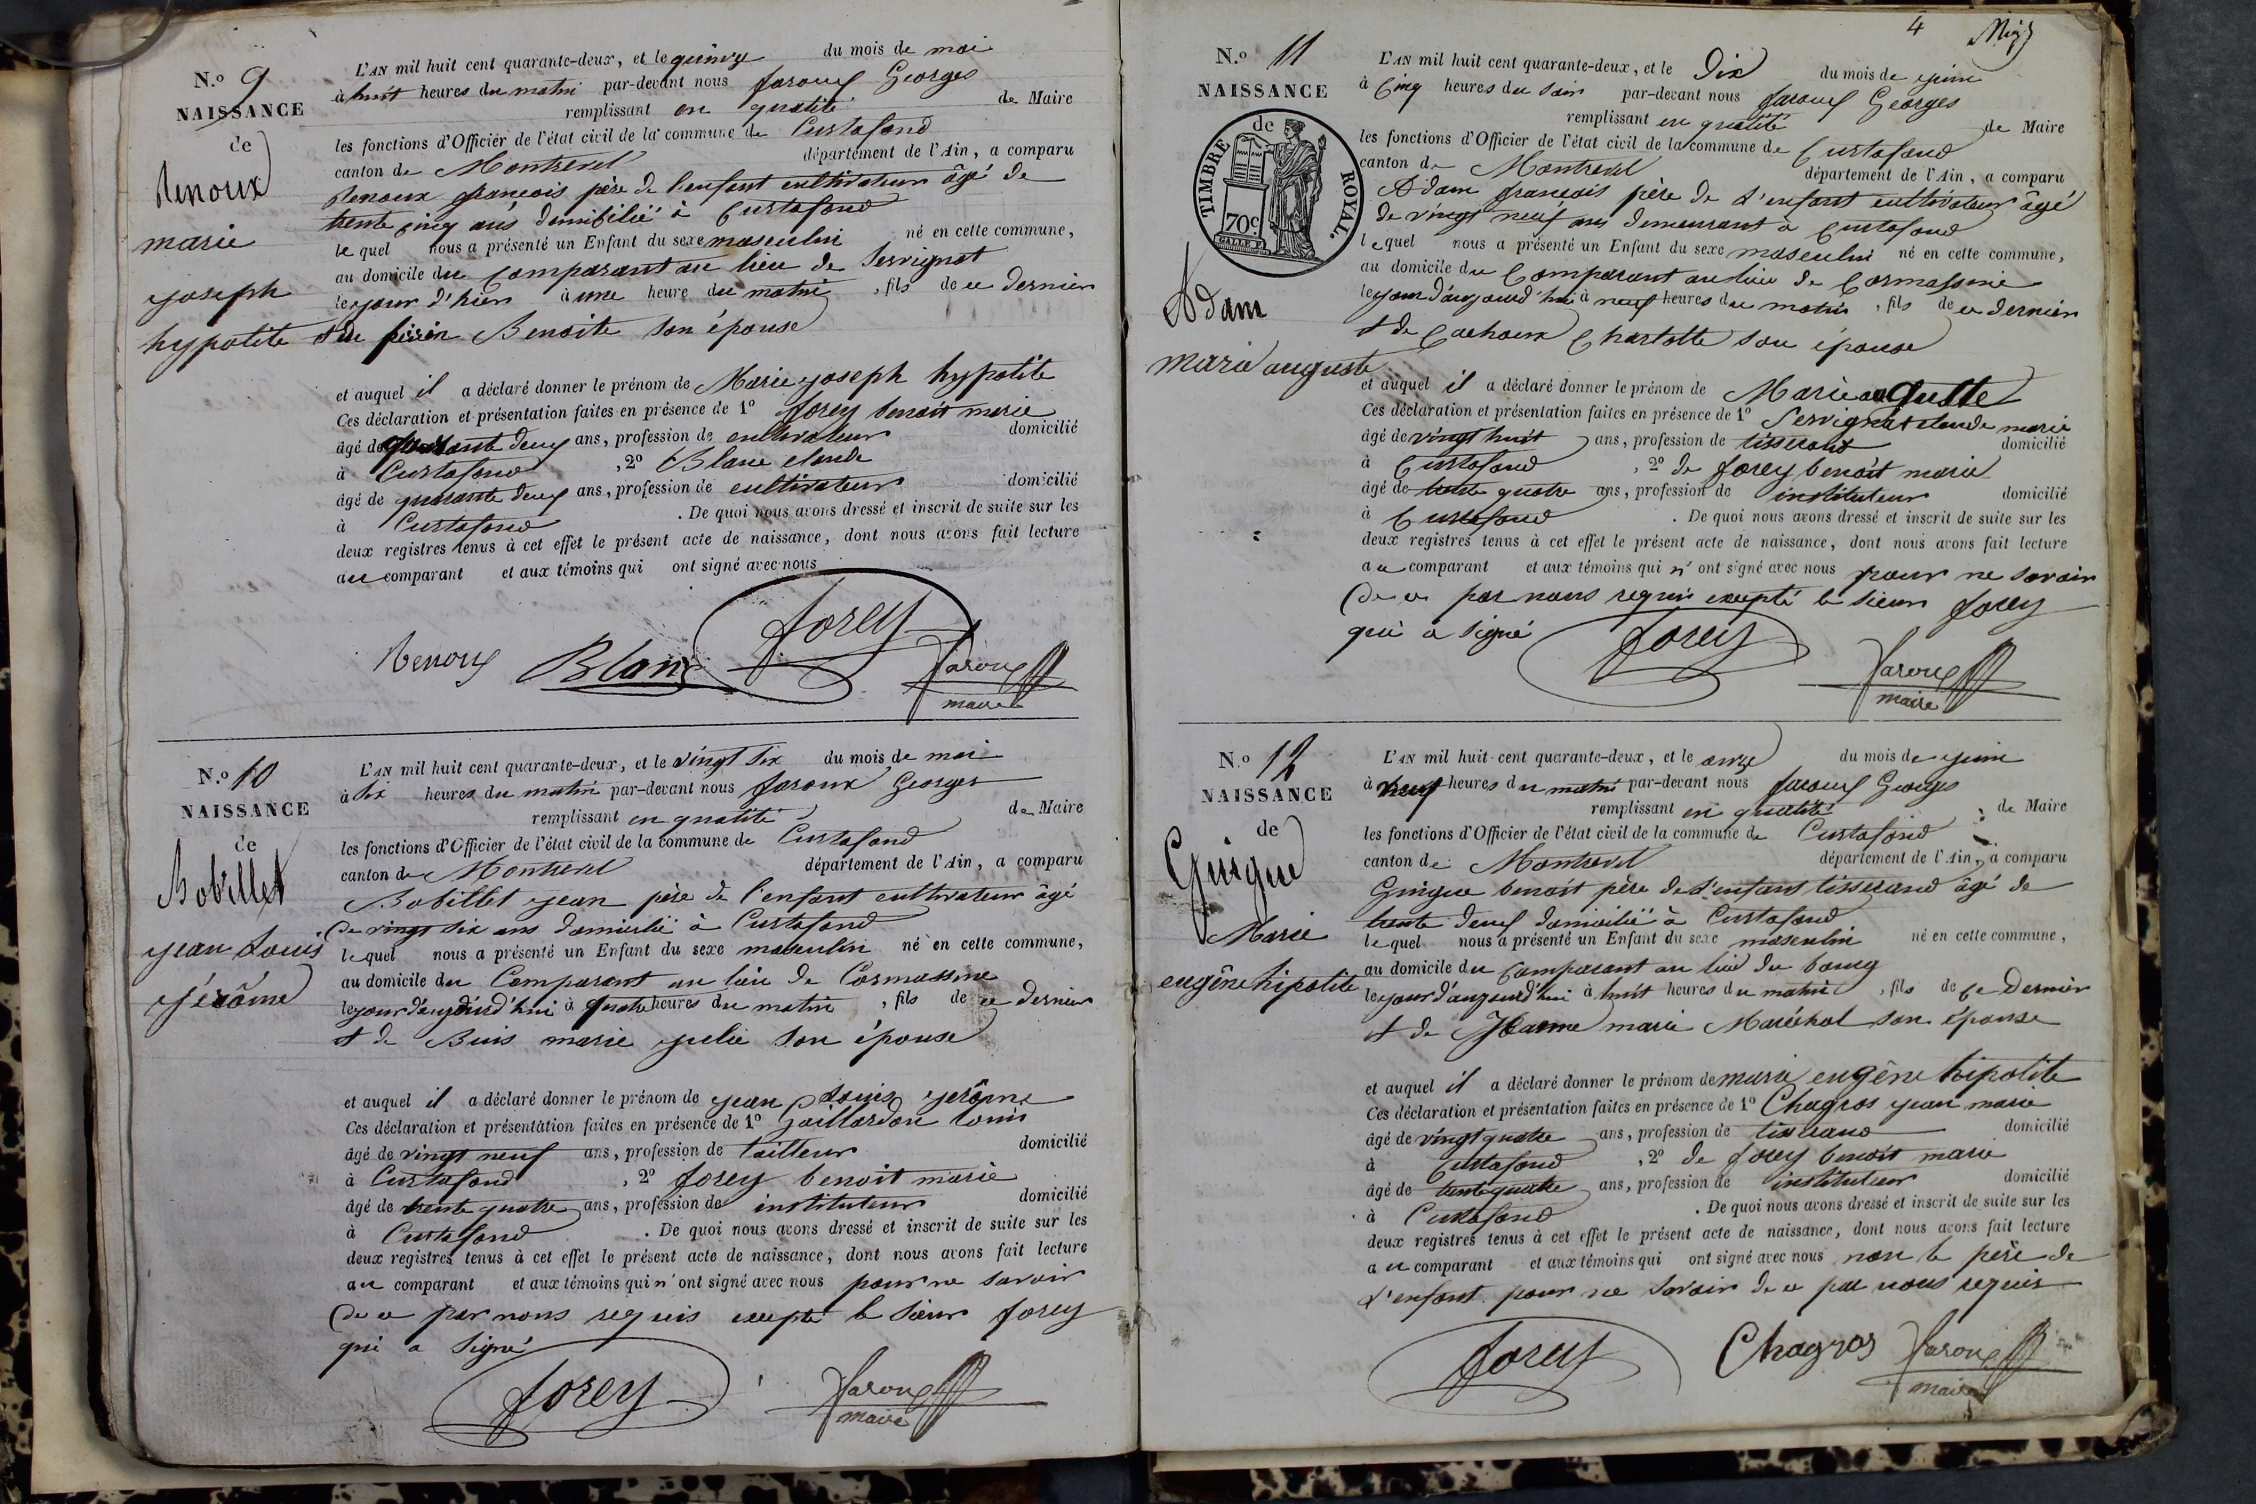 N.o 9
NAISSANCE
de
Renoux
marie
joseph
hypolite
L'AN mil huit cent quarante-deux, et le quinze du mois de mai
à huit heures du matin par-devant nous faroux Georges
remplissant en qualité de Maire
les fonctions d'Officier de l'état civil de la commune de Curtafond
canton de Montrevel département de l'Ain, a comparu
Renoux françois père de l'enfant cultivateur âgé de
trente cinq ans domicilié à Curtafond
le quel nous a présenté un Enfant du sexe masculin né en cette commune,
au domicile du Comparant au lieu de Servignat
le jour d'hier à une heure du matin, fils de ce dernier
et de Benoite son épouse
et auquel il a déclaré donner le prénom de Marie joseph hypolite
Ces déclaration et présentation faites en présence de 1o forey benoit marie
âgé de deux ans, profession de cultivateur domicilié
à Curtafond, 2o Blanc claude
âgé de quarante deux ans, profession de cultivateur domicilié
à Curtafond. De quoi nous avons dressé et inscrit de suite sur les
deux registres tenus à cet effet le présent acte de naissance, dont nous avons fait lecture
au comparant et aux témoins qui ont signé avec nous
Renoux Blanc forey faroux
maire
N.o 10
NAISSANCE
de
Bobillet
jean Louis
jérôme
L'AN mil huit cent quarante-deux, et le vingt six du mois de mai
à six heures du matin par-devant nous faroux Georges
remplissant en qualité de Maire
les fonctions d'Officier de l'état civil de la commune de Curtafond
canton de Montrevel département de l'Ain, a comparu
Bobillet jean père de l'enfant cultivateur âgé
De vingt six ans domicilié à Curtafond
le quel nous a présenté un Enfant du sexe masculin né en cette commune,
au domicile du Comparant au lieu de Cormassine
le jour d'aujourd'hui à quatre heures du matin, fils de ce dernier
et de Buis marie julie son épouse
et auquel il a déclaré donner le prénom de jean Louis jerôme
Ces déclaration et présentation faites en présence de 1o Gaillardon louis
âgé de vingt neuf ans, profession de tailleur domicilié
à Curtafond, 2o forey benoit marie
âgé de trente quatre ans, profession de instituteur domicilié
à Curtafond. De quoi nous avons dressé et inscrit de suite sur les
deux registres tenus à cet effet le présent acte de naissance, dont nous avons fait lecture
au comparant et aux témoins qui n'ont signé avec nous pour ne savoir
De ce par nous requis excepté le sieur forey
qui a signé
forey faroux
maire
4
N.o 11
NAISSANCE
de
TIMBRE ROYAL.
70c
Adam
marie auguste
L'AN mil huit cent quarante-deux, et le Dix du mois de juin
à Cinq heures du soir par-devant nous faroux Georges
remplissant en qualité de Maire
les fonctions d'Officier de l'état civil de la commune de Curtafond
canton de Montrevel département de l'Ain, a comparu
Adam françois père de L'enfant cultivateur âgé
de vingt neuf ans demeurant à Curtafond
le quel nous a présenté un Enfant du sexe masculin né en cette commune,
au domicile du Comparant au lieu de Cormassine
le jour d'aujourd'hui à neuf heures du matin, fils de ce dernier
et de Cachoux Charlotte son épouse
et auquel il a déclaré donner le prénom de Marie auguste
Ces déclaration et présentation faites en présence de 1o Servignat claude marie
âgé de vingt huit ans, profession de tisserand domicilié
à Curtafond, 2o de forey benoit marie
âgé de trente quatre ans, profession de instituteur domicilié
à Curtafond. De quoi nous avons dressé et inscrit de suite sur les
deux registres tenus à cet effet le présent acte de naissance, dont nous avons fait lecture
au comparant et aux témoins qui n'ont signé avec nous pour ne savoir
De ce par nous requis excepté le sieur forey
qui a signé
forey faroux
maire
N.o 12
NAISSANCE
de
Guigue
Marie
eugêne hipolite
L'AN mil huit cent quarante-deux, et le onze du mois de juin
à neuf heures du matin par-devant nous faroux Georges
remplissant en qualité de Maire
les fonctions d'Officier de l'état civil de la commune de Curtafond
canton de Montrevel département de l'Ain, a comparu
Guigue benoit père de L'enfant tisserand âgé de
trente deux domicilié à Curtafond
le quel nous a présenté un Enfant du sexe masculin né en cette commune,
au domicile du Comparant au lieu du bourg
le jour d'aujourd'hui à huit heures du matin, fils de ce Dernier
et de Jeanne marie Maréchal son épouse
et auquel il a déclaré donner le prénom de marie eugêne hipolite
Ces déclaration et présentation faites en présence de 1o Chagros jean marie
âgé de vingt quatre ans, profession de tisserand domicilié
à Curtafond, 2o de forey benoit marie
âgé de trente quatre ans, profession de instituteur domicilié
à Curtafond. De quoi nous avons dressé et inscrit de suite sur les
deux registres tenus à cet effet le présent acte de naissance, dont nous avons fait lecture
au comparant et aux témoins qui ont signé avec nous non le père de
L'enfant pour ne savoir de ce par nous requis
forey Chagros faroux
maire